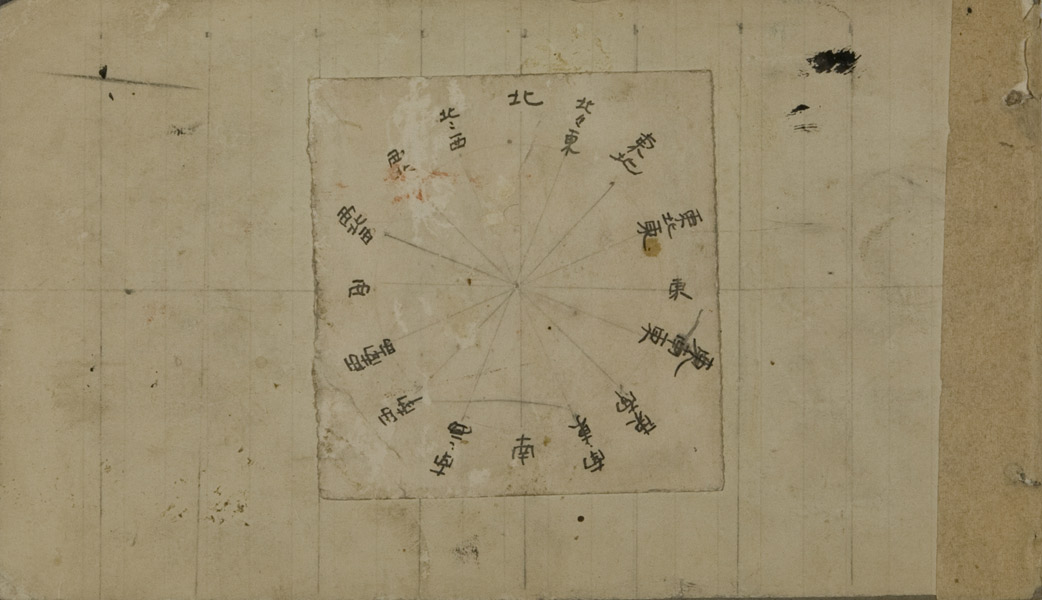 北
北々東
東北
東北東
東
東南東
東南
南々東
南
南々西
西南
西南西
西
西北西
西北
北々西